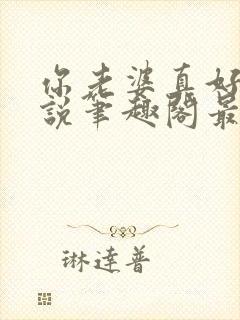 你老婆真好
説筆趣閣最
琳達普